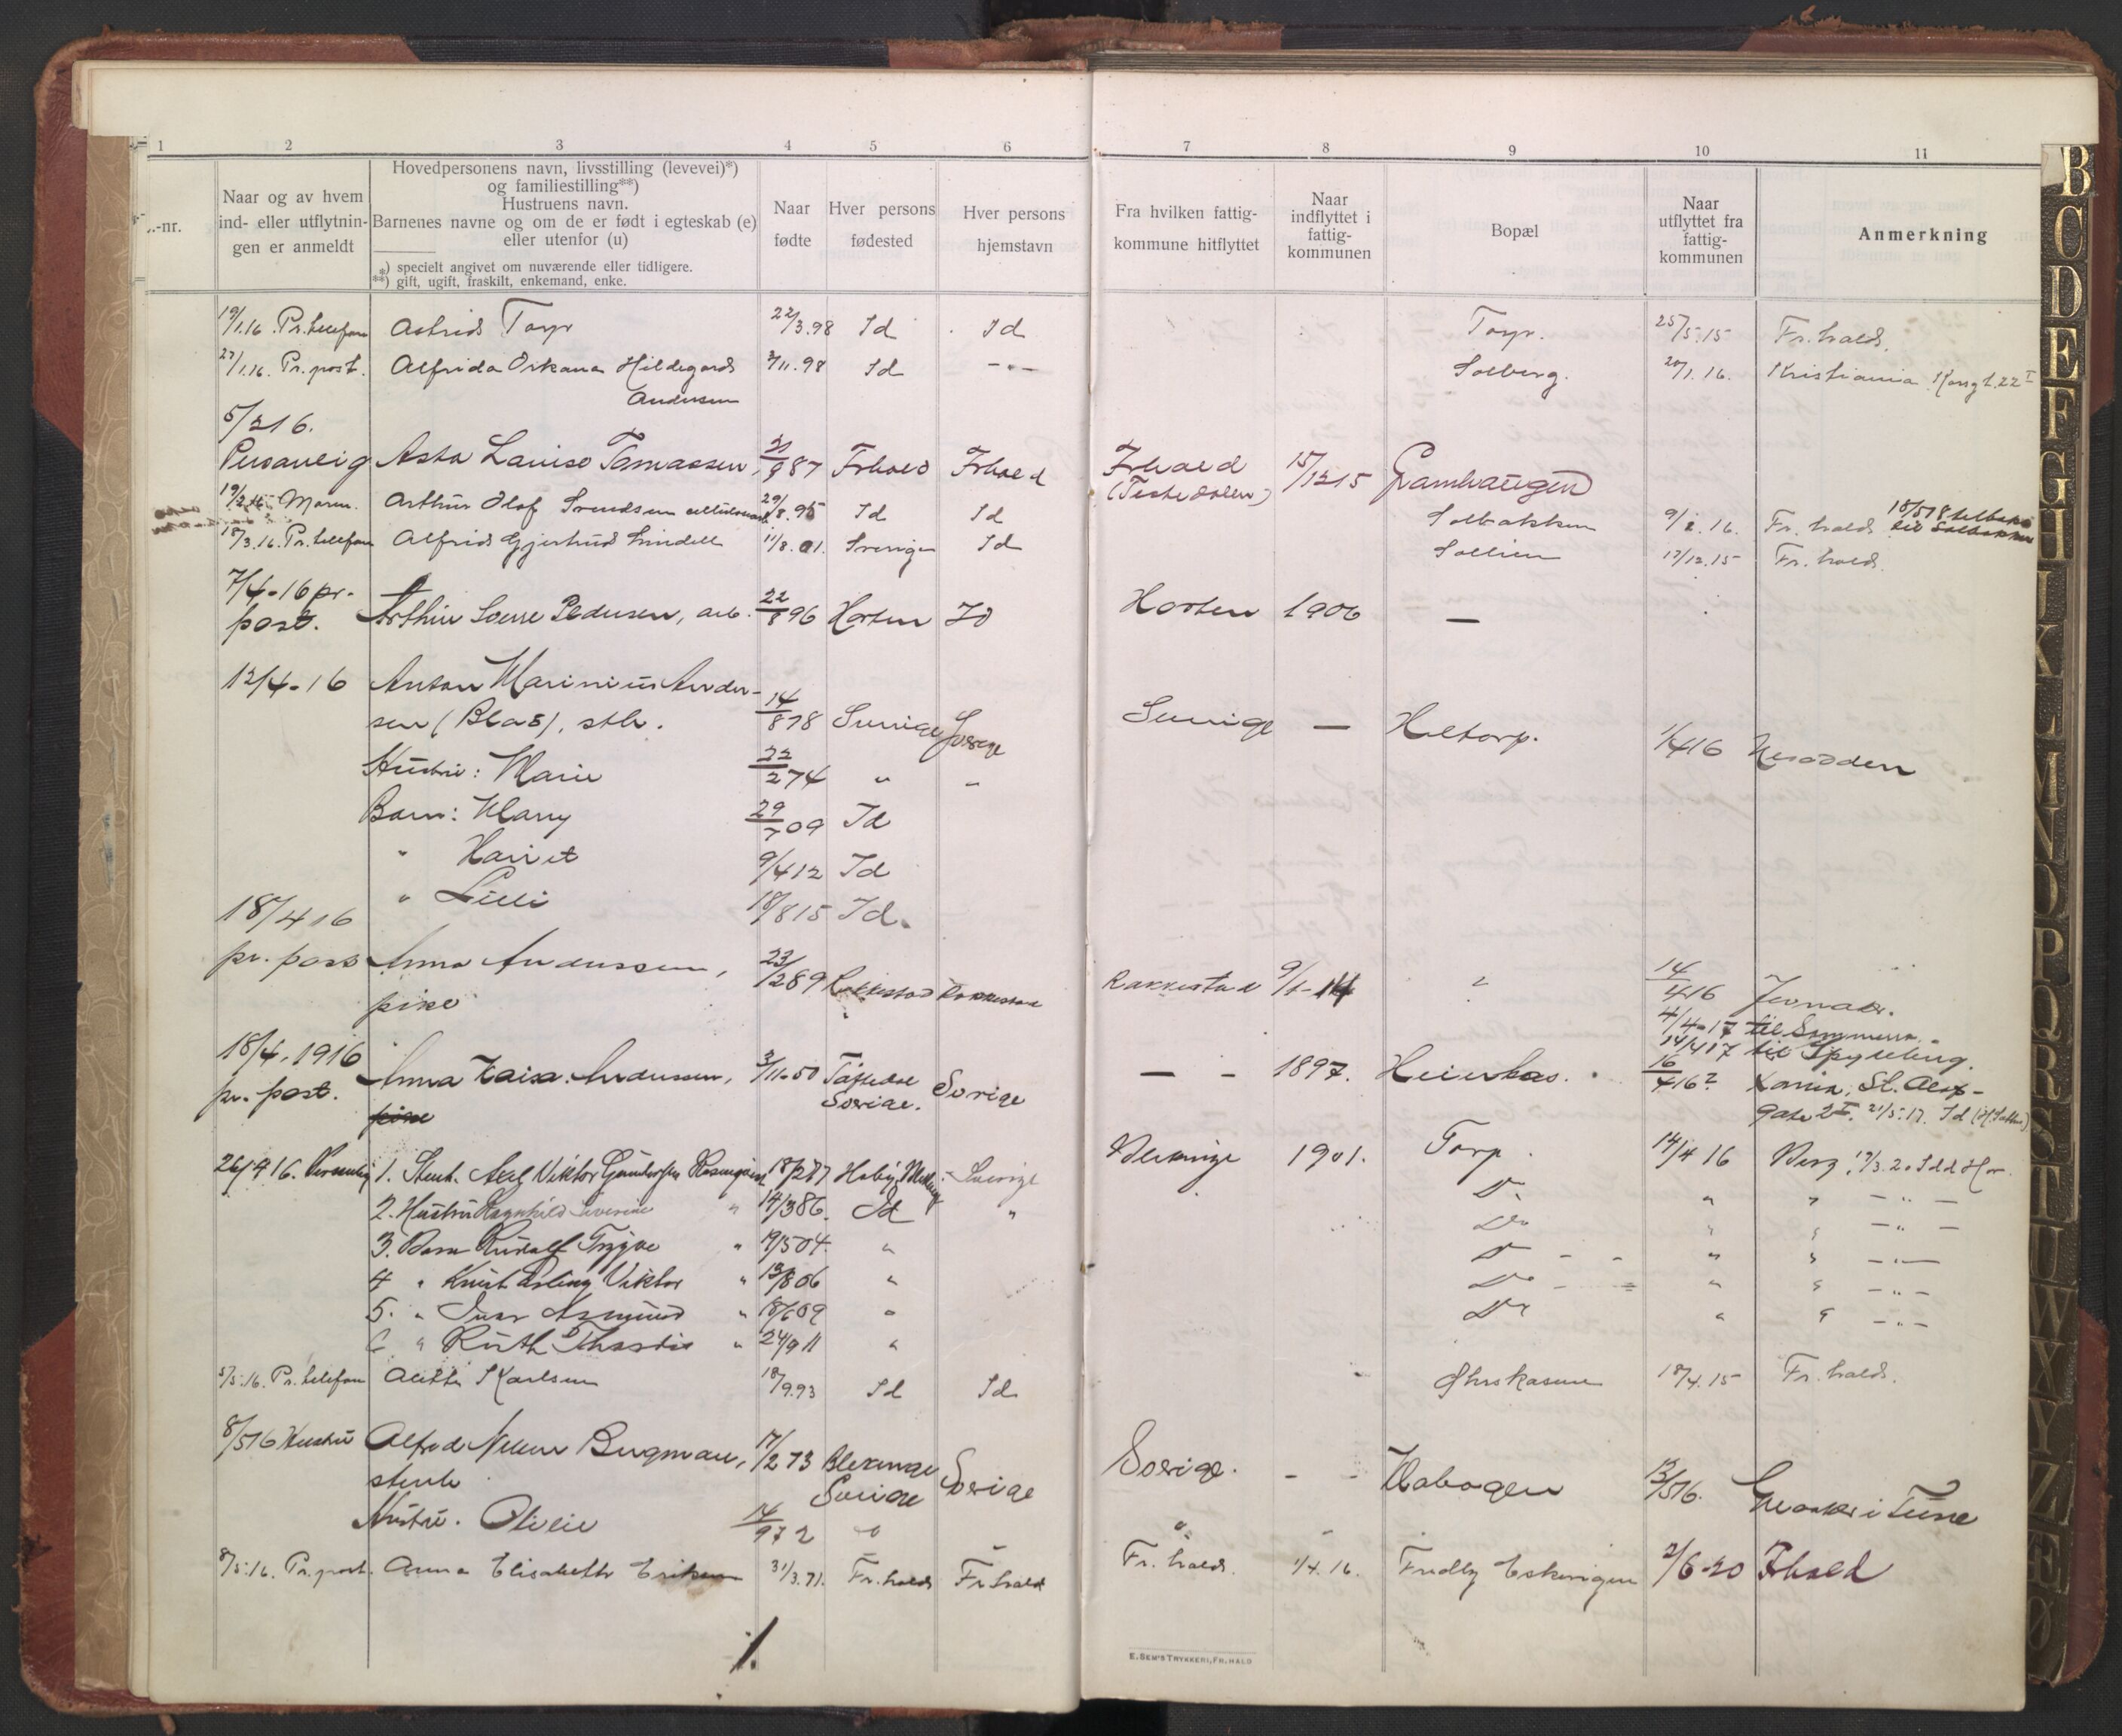 1 2 3 4 5 6 7 8 9 10 11
..-nr.
Naar og av hvem
ind- eller utflytnin-
gen er anmeldt
Hovedpersonens navn, livsstilling (levevei)*)
og familiestilling**)
Hustruens navn.
Barnenes navne og om de er født i egteskab (e)
eller utenfor (u)
*) specielt angivet om nuværende eller tidligere.
**) gift, ugift, fraskilt, enkemand, enke.
Naar
fødte
Hver persons
fødested
Hver persons
hjemstavn
Fra hvilken fattig-
kommune hitflyttet
Naar
indflyttet i
fattig-
kommunen
Bopæl
Naar
utflyttet fra
fattig-
kommunen
Anmerkning
19/1.16. Pr. telefon Astrid Torp 22/3.98 Id Id Torp. 25/5.15 Fr.hald.
27/1.16. Pr. post. Alfrida Oskana Hildegard 3/11.98 Id -"- Solberg. 20/1.16. Kristiania Kongt. 22 I
Andersen
5/2 16.
Personlig Asta Louise Tomassen, 21/9 87 Frhald Frhald Frhald 15/12 15 Gramhaugen
(Tistedalen)
19/2.16 Moren. Arthur Olof Svendsen 29/8.95 Id Id Solbakken 9/2.16. Fr.hald 18/5 18 tilbake
til Solbakken
18/3.16. Pr. telefon Alfrid Gjertrud Lindell 11/8.01. Sverige Id Sollien 17/12.15 Fr.hald.
7/4-16 pr.
post. Arthur Sverre Pedersen, arb. 22/8 96 Horten Id Horten 1906 —
12/4-16 Anton Marinius Ander-
sen (Blad), sth. 14/8 78 Sverige Sverige Sverige — Heltorp. 1/4 16 Nesodden
Hustru: Marie 22/2 74 " -
Barn: Marry 29/7 09 Id
" Harriet 9/4 12 Id
" Lilli 18/8 15 Id.
18/4 16
pr. post Anna Anderssen, 23/2 89 Rakkestad Rakkestad Rakkestad 9/1-14 " 14/4 16 Jevnaker.
pike
4/4-17 til
14/4 17 til Spydeberg.
18/4.1916
pr. post. Anna Kaisa Anderssen, 3/11-50 Töftedal Sverige — - 1897. 16/4 16? Kania, St. Olafs-
pike Sverige.
gate 2 I. 21/5.17. Id
26/4 16. Personlig 1. Stenh. Viktor 18/2 77 Sverige Blekinge 1901. Torp. 14/4 16 Berg. 17/3.20 Idd
2. Hustru Ragnhild Severine " 14/3 86. Id " Do " " - " -
3. Barn Rudolf Trygve " 19/5 04. " Do " " - " -
4 " Knut Erling Viktor " 13/8 06 " Do - - " " - " -
5. " Ivar Asmund " 18/6 09 " Do " " - " -
6 " Ruth Thordis " 24/9 11 " Do " " - " -
5/5.16. Pr. telefon Alette Karlsen 18/9.93 Id Id 18/4.15 Fr.hald.
8/5 16 Hustru Alfred Bergman, 17/2 73 Blekinge Sverige Sverige. - - 13/5 16. Greaaker i Tune
stenh Sverige
Hustru. Olivie 14/9 72 "
8/5.16. Pr. post. Anna Elisabeth Eriksen 31/3.71. Fr.hald Fr.hald Fr.hald. 1/4.16. Fredly Eskevigen 2/6-20 Frhald
E. SEM'S TRYKKERI, FR.HALD
B C D E F G H I K L M N O P Q R S T U W X Y Z Æ Ø